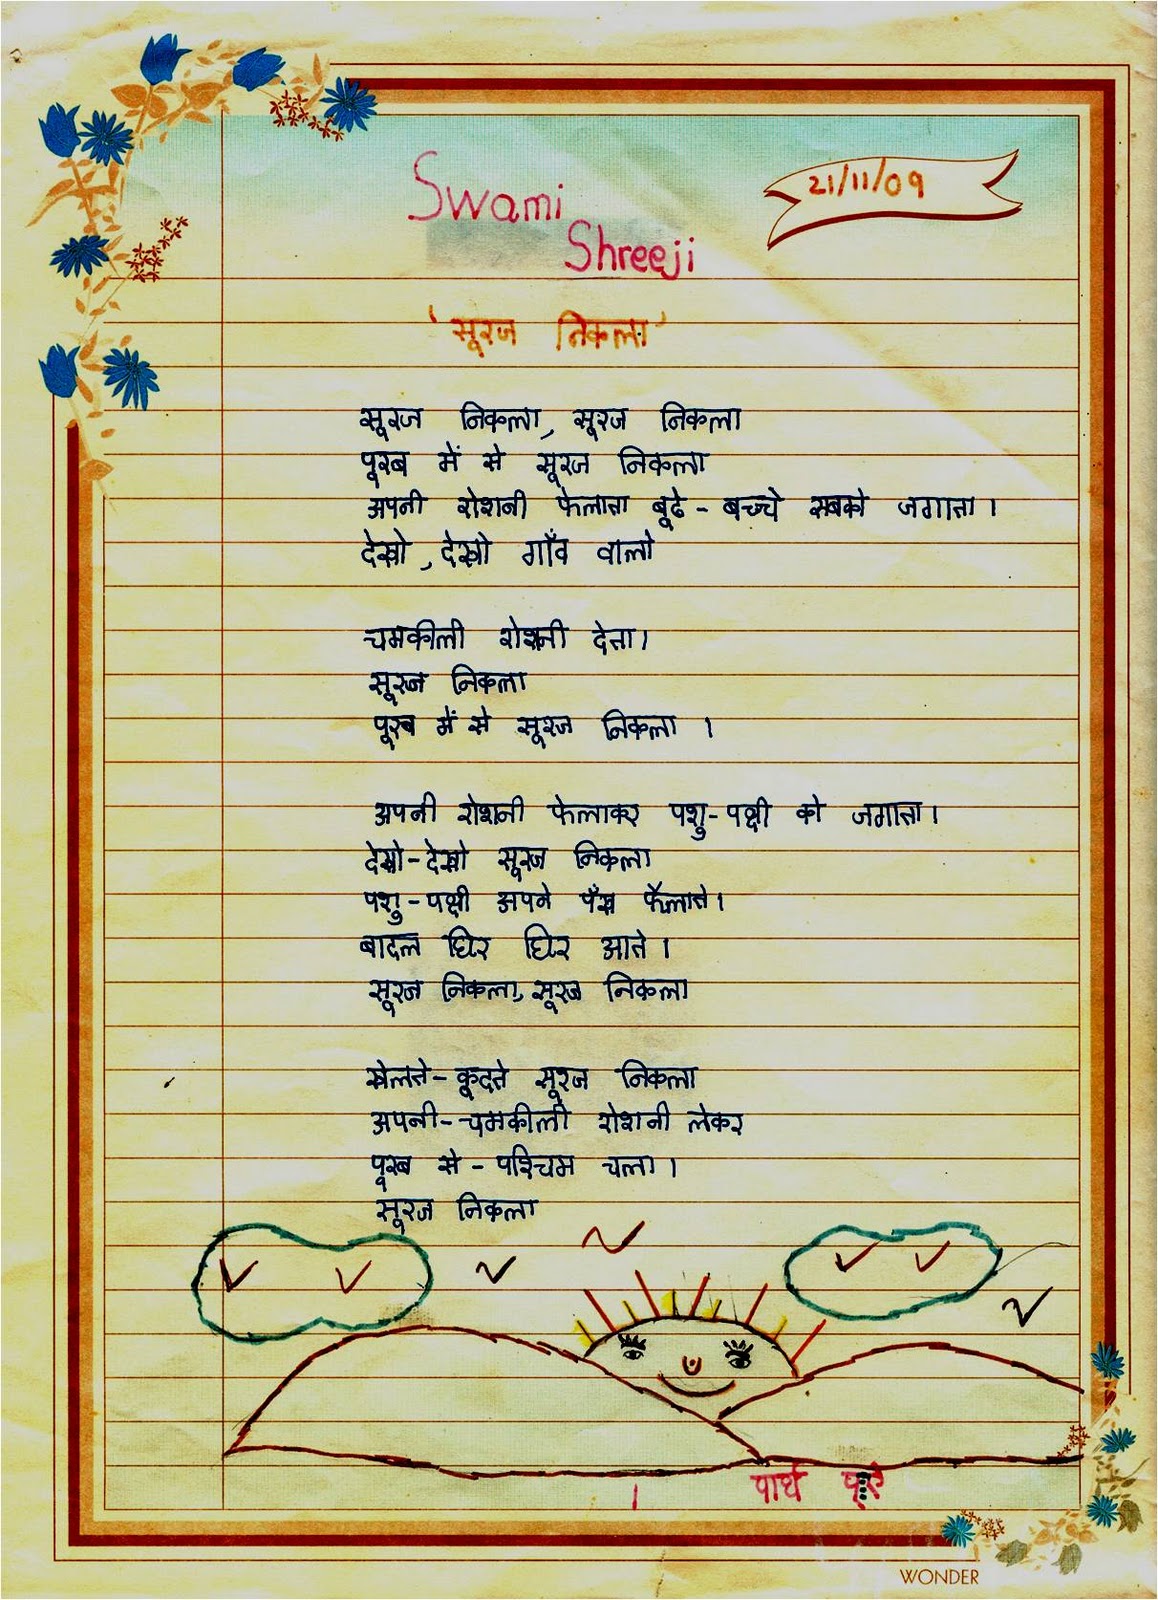 Swami
Shreeji
21/11/09
'सूरज निकला'
सूरज निकला, सूरज निकला
पूरब में से सूरज निकला
अपनी रोशनी फेलाता बूढे - बच्चे सबको जगाता।
देखो, देखो गाँव वालो
चमकीली रोशनी देता।
सूरज निकला
पूरब में से सूरज निकला ।
अपनी रोशनी फेलाकर पशु-पक्षी को जगाता।
देखो-देखो सूरज निकला
पशु-पक्षी अपने पँख फैलाते।
बादल घिर घिर आते ।
सूरज निकला, सूरज निकला
खेलते-कूदते सूरज निकला
अपनी-चमकीली रोशनी लेकर
पूरब से - पश्चिम चला ।
सूरज निकला
पार्थ
WONDER